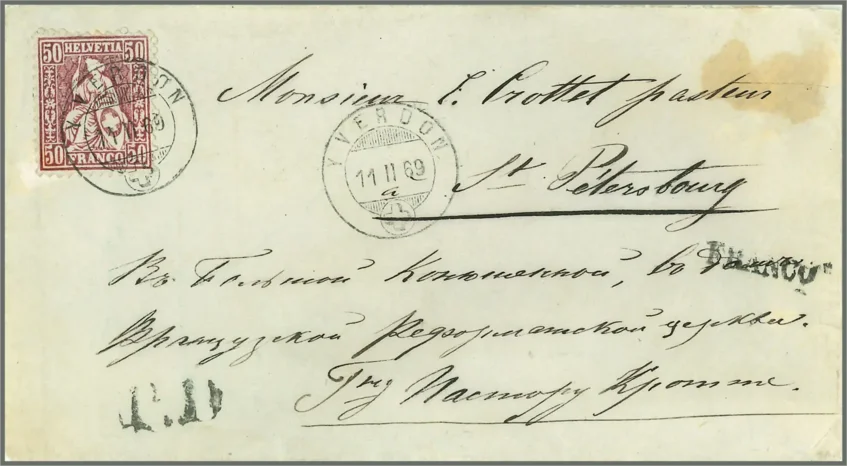 50 HELVETIA 50
50 FRANCO 50
YVERDON
11 II 69
Monsieur E. Crottet pasteur
YVERDON
11 II 69
a
St. Pétersbourg
Въ Большой Конюшенной, въ домѣ
FRANCO
Французской Реформатской церкви.
P.D
Гну Пастору Кротте.